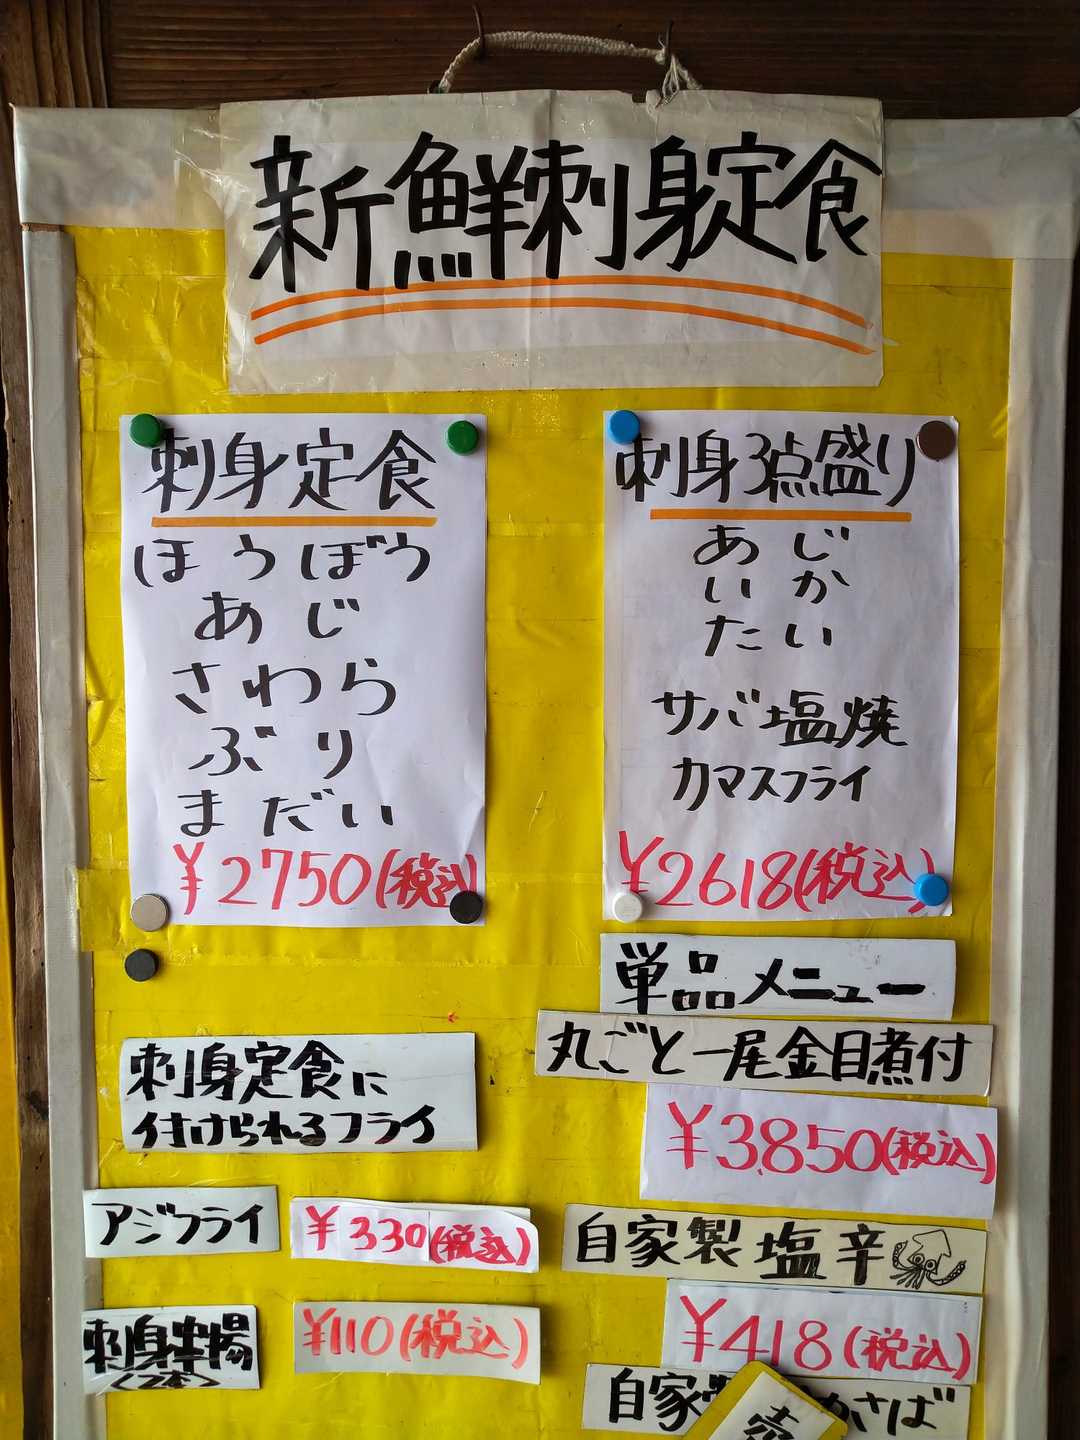 新鮮刺身定食
刺身定食
ほうぼう
あじ
さわら
ぶり
まだい
¥2750(税込)
刺身3点盛り
あじ
いか
たい
サバ塩焼
カマスフライ
¥2618(税込)
単品メニュー
丸ごと一尾金目煮付
¥3,850(税込)
自家製塩辛
¥418(税込)
自家
かさば
売
刺身定食に
付けられるフライ
アジフライ
¥330(税込)
刺身串揚
(2本)
¥110(税込)